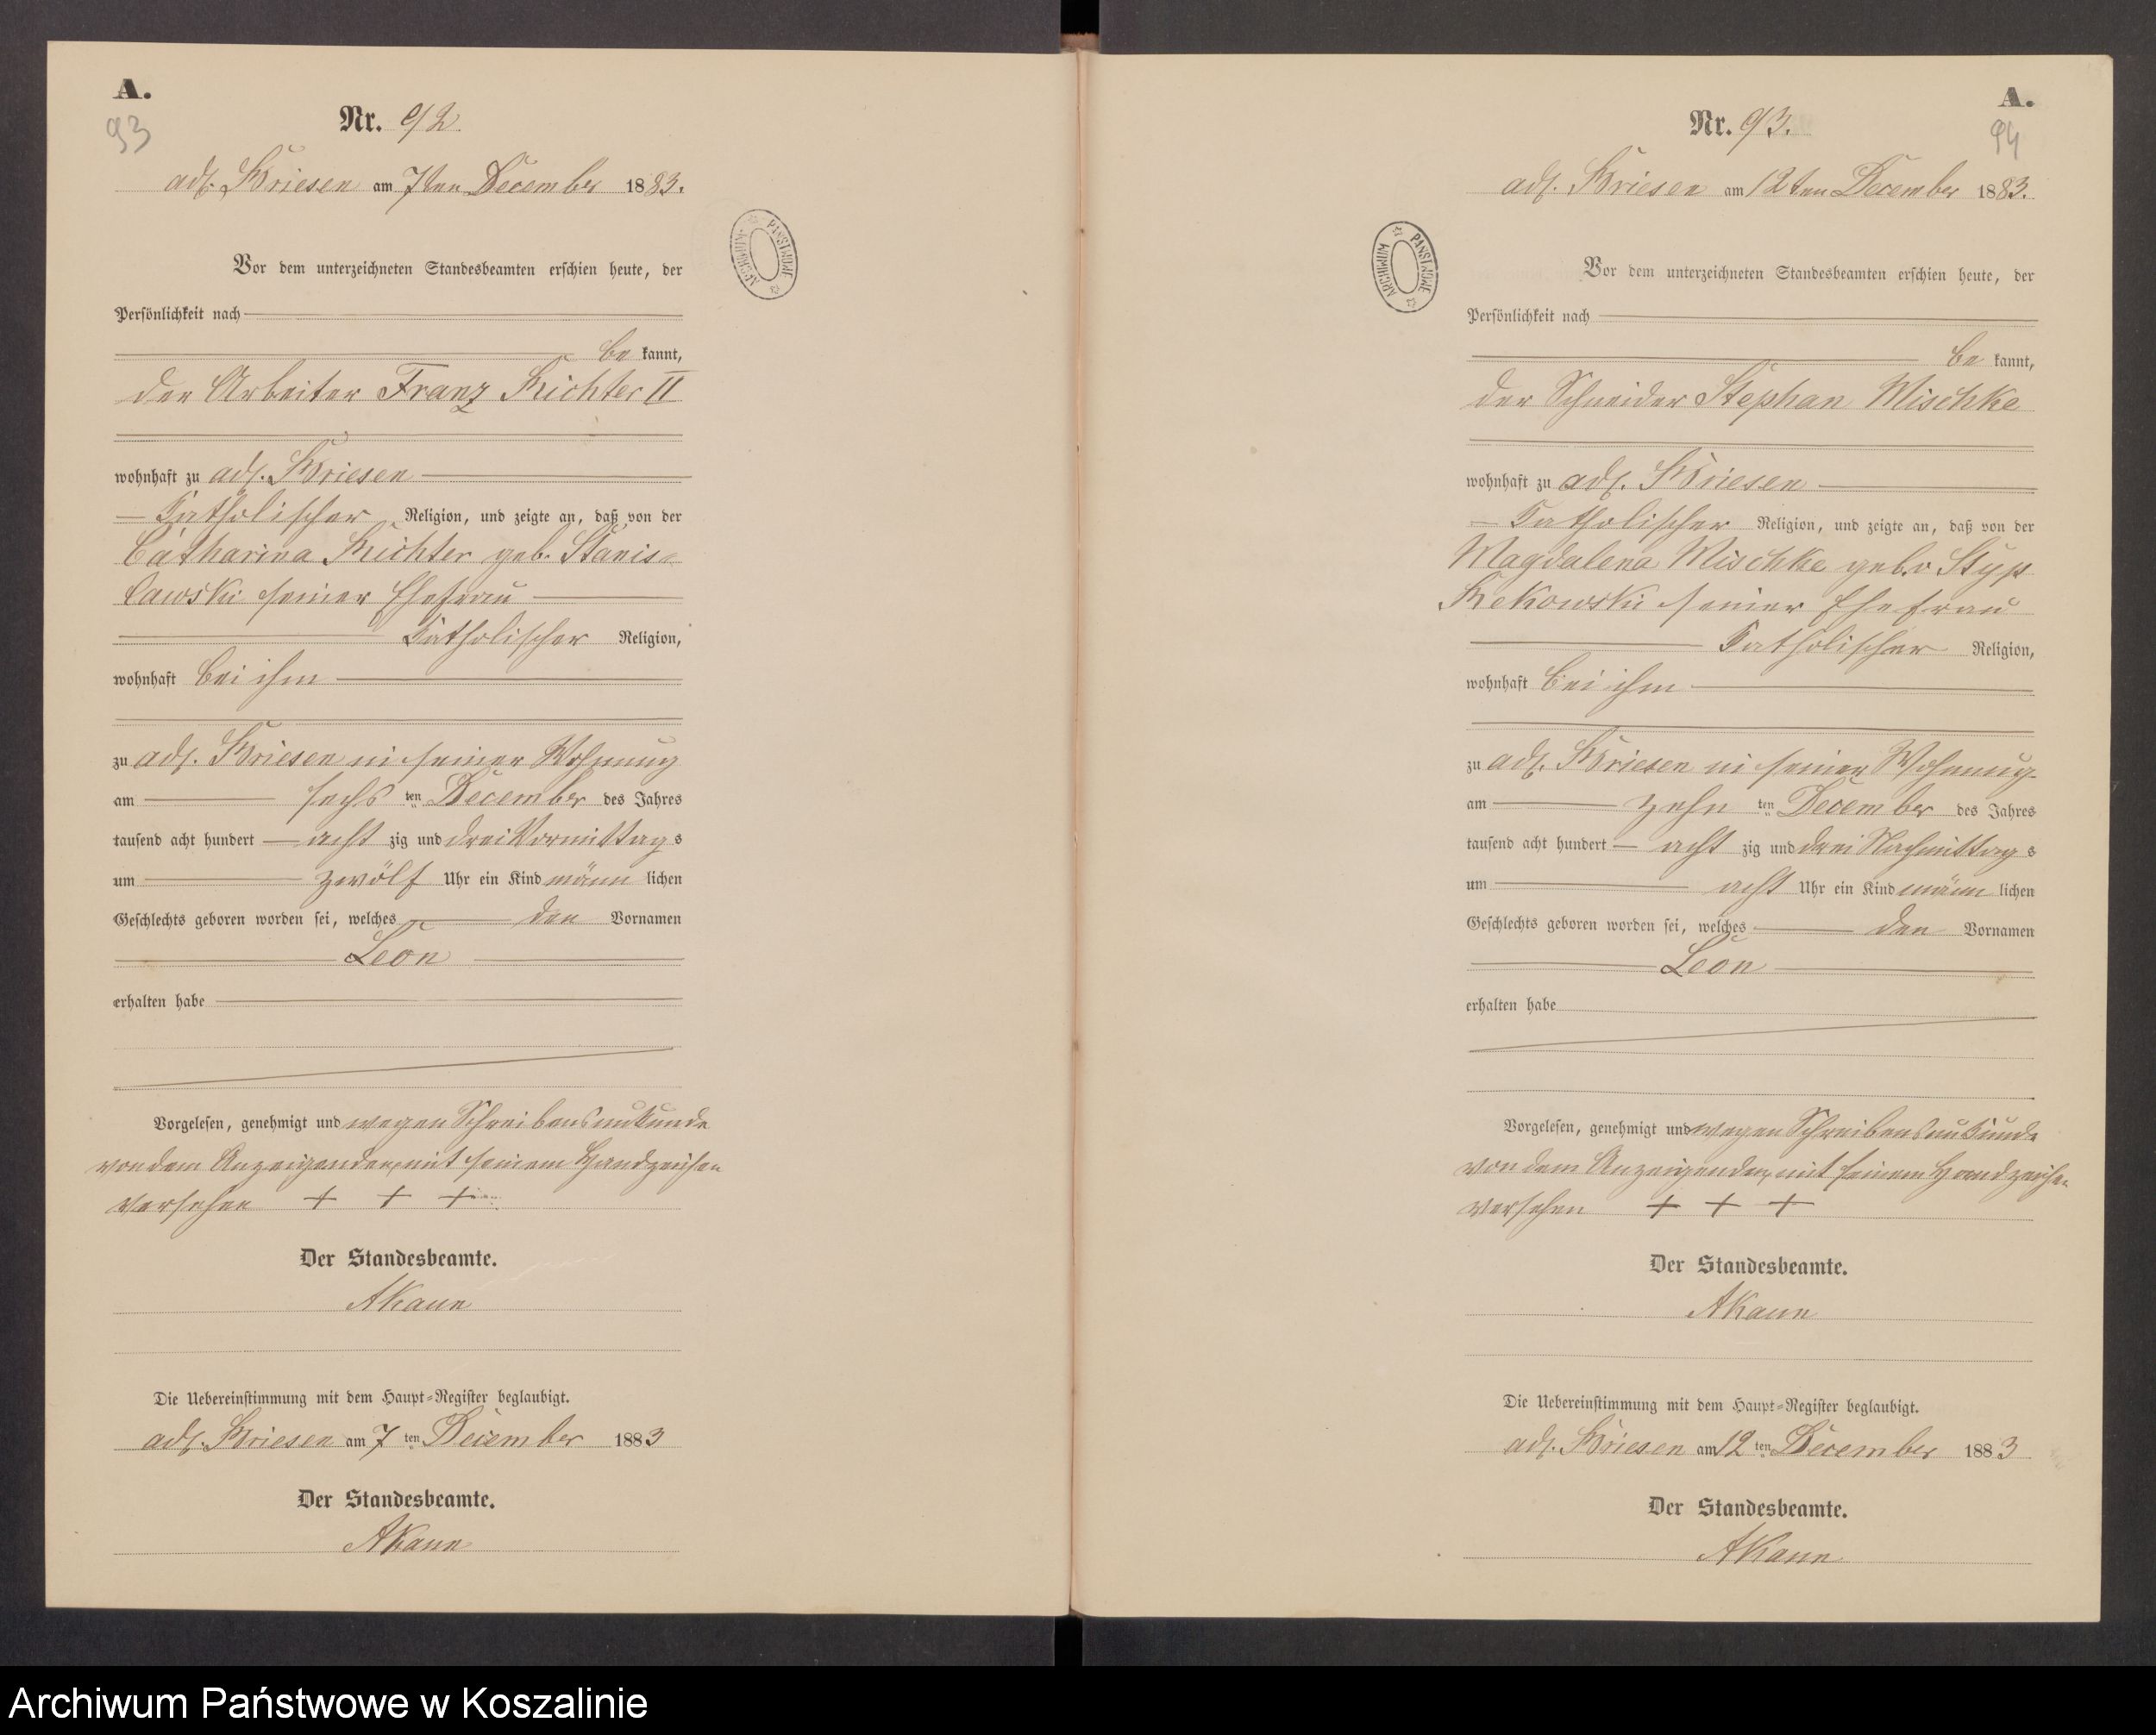 A.
93
Nr. 92.
adl. Briesen am 7ten December 1883.
Vor dem unterzeichneten Standesbeamten erschien heute, der
Persönlichkeit nach
be kannt,
der Arbeiter Franz Richter II
wohnhaft zu adl. Briesen
katholischer Religion, und zeigte an, daß von der
Catharina Richter geb. Stanis=
lawski seiner Ehefrau
katholischer Religion,
wohnhaft bei ihm
zu adl. Briesen in seiner Wohnung
am sechs ten December des Jahres
tausend acht hundert acht zig und drei Vormittags
um zwölf Uhr ein Kind männ lichen
Geschlechts geboren worden sei, welches den Vornamen
Leon
erhalten habe
Vorgelesen, genehmigt und wegen Schreibensunkunde
von dem Anzeigenden mit seinem Handzeichen
versehen + + +
Der Standesbeamte.
AKaun
Die Uebereinstimmung mit dem Haupt=Register beglaubigt.
adl. Briesen am 7 ten December 1883
Der Standesbeamte.
AKaun
ARCHIWUM PAŃSTWOWE
A.
94
Nr. 93.
adl. Briesen am 12ten December 1883.
Vor dem unterzeichneten Standesbeamten erschien heute, der
Persönlichkeit nach
be kannt,
der Schneider Stephan Mischke
wohnhaft zu adl. Briesen
katholischer Religion, und zeigte an, daß von der
Magdalena Mischke geb. v Styp
Rekowski seiner Ehefrau
katholischer Religion,
wohnhaft bei ihm
zu adl. Briesen in seiner Wohnung
am zehn ten December des Jahres
tausend acht hundert acht zig und drei Nachmittags
um acht Uhr ein Kind männ lichen
Geschlechts geboren worden sei, welches den Vornamen
Leon
erhalten habe
Vorgelesen, genehmigt und wegen Schreibensunkunde
von dem Anzeigenden mit seinem Handzeichen
versehen + + +
Der Standesbeamte.
AKaun
Die Uebereinstimmung mit dem Haupt=Register beglaubigt.
adl. Briesen am 12 ten December 1883
Der Standesbeamte.
AKaun
ARCHIWUM PAŃSTWOWE
Archiwum Państwowe w Koszalinie